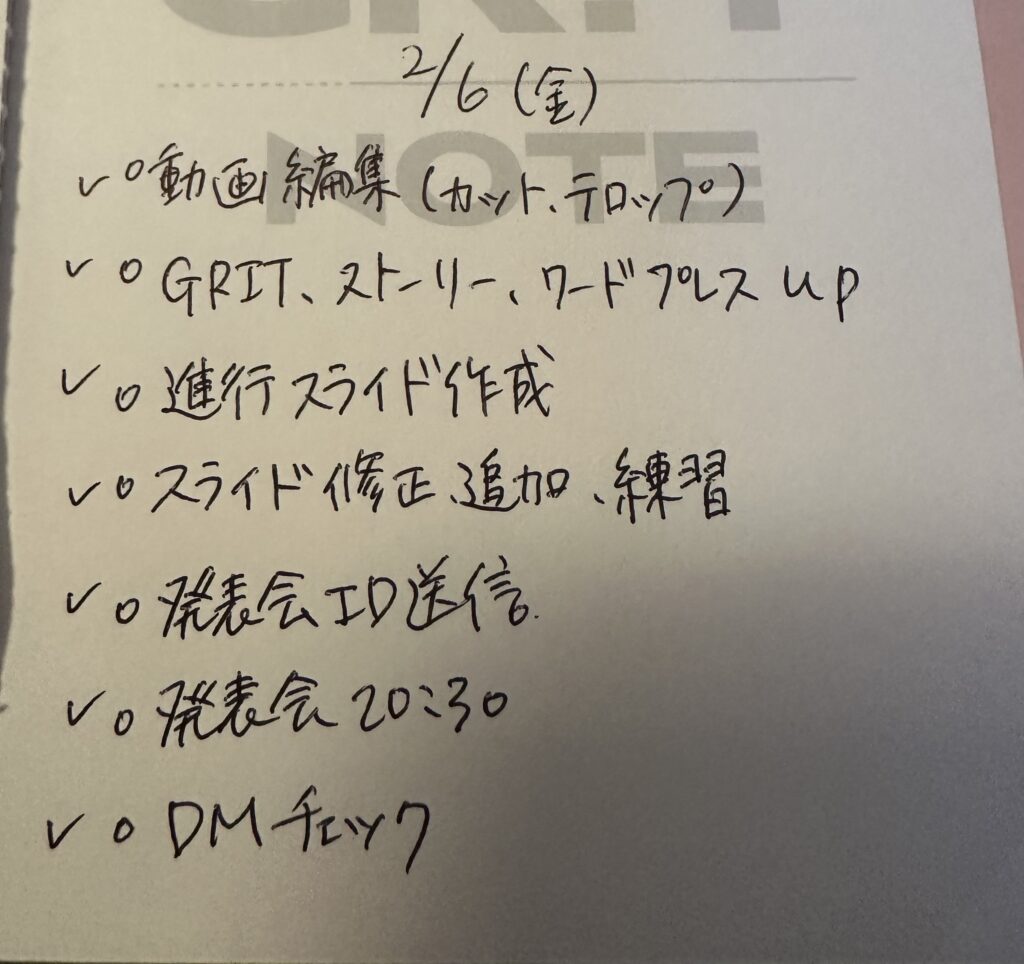 GRIT
2/6(金)
NOTE
✓○動画編集(カット、テロップ)
✓○GRIT、ストーリー、ワードプレス up
✓○進行スライド作成
✓○スライド修正、追加、練習
✓○発表会ID送信.
✓○発表会20:30
✓○DMチェック